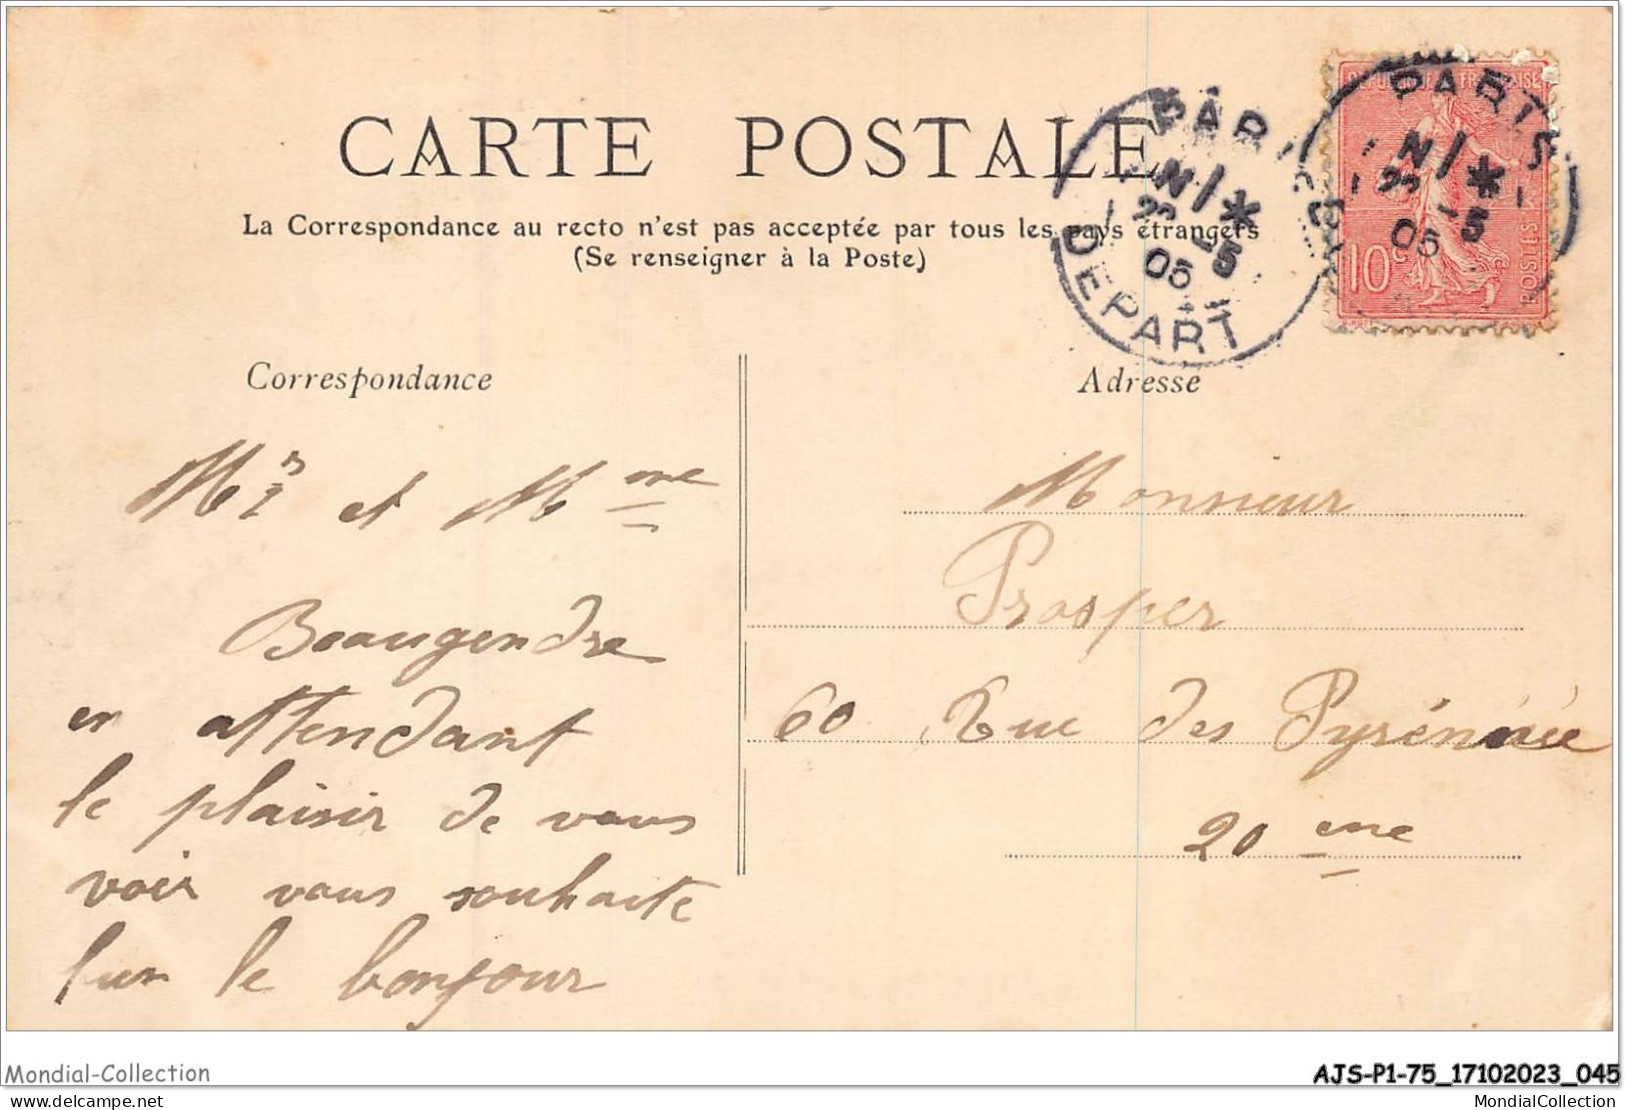 CARTE POSTALE
La Correspondance au recto n'est pas acceptée par tous les pays étrangers
(Se renseigner à la Poste)
REPUBLIQUE FRANÇAISE
10c
POSTES
PARIS
N *
22 -5
05
DEPART
PARIS
N *
22 -5
05
Correspondance
Mr et Mme
Beaugendre
en attendant
le plaisir de vous
voir vous souhaite
le bonjour
Adresse
Monsieur
Prosper
60 Rue des
20 eme
Mondial-Collection
AJS-P1-75_17102023_045
delcampe.net
MondialCollection